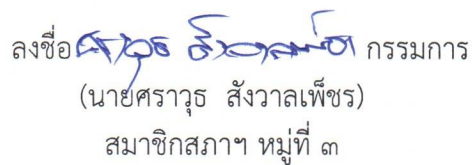 ลงชื่อ ศราวุธ สังวาลเพ็ชร กรรมการ
(นายศราวุธ สังวาลเพ็ชร)
สมาชิกสภาฯ หมู่ที่ ๓